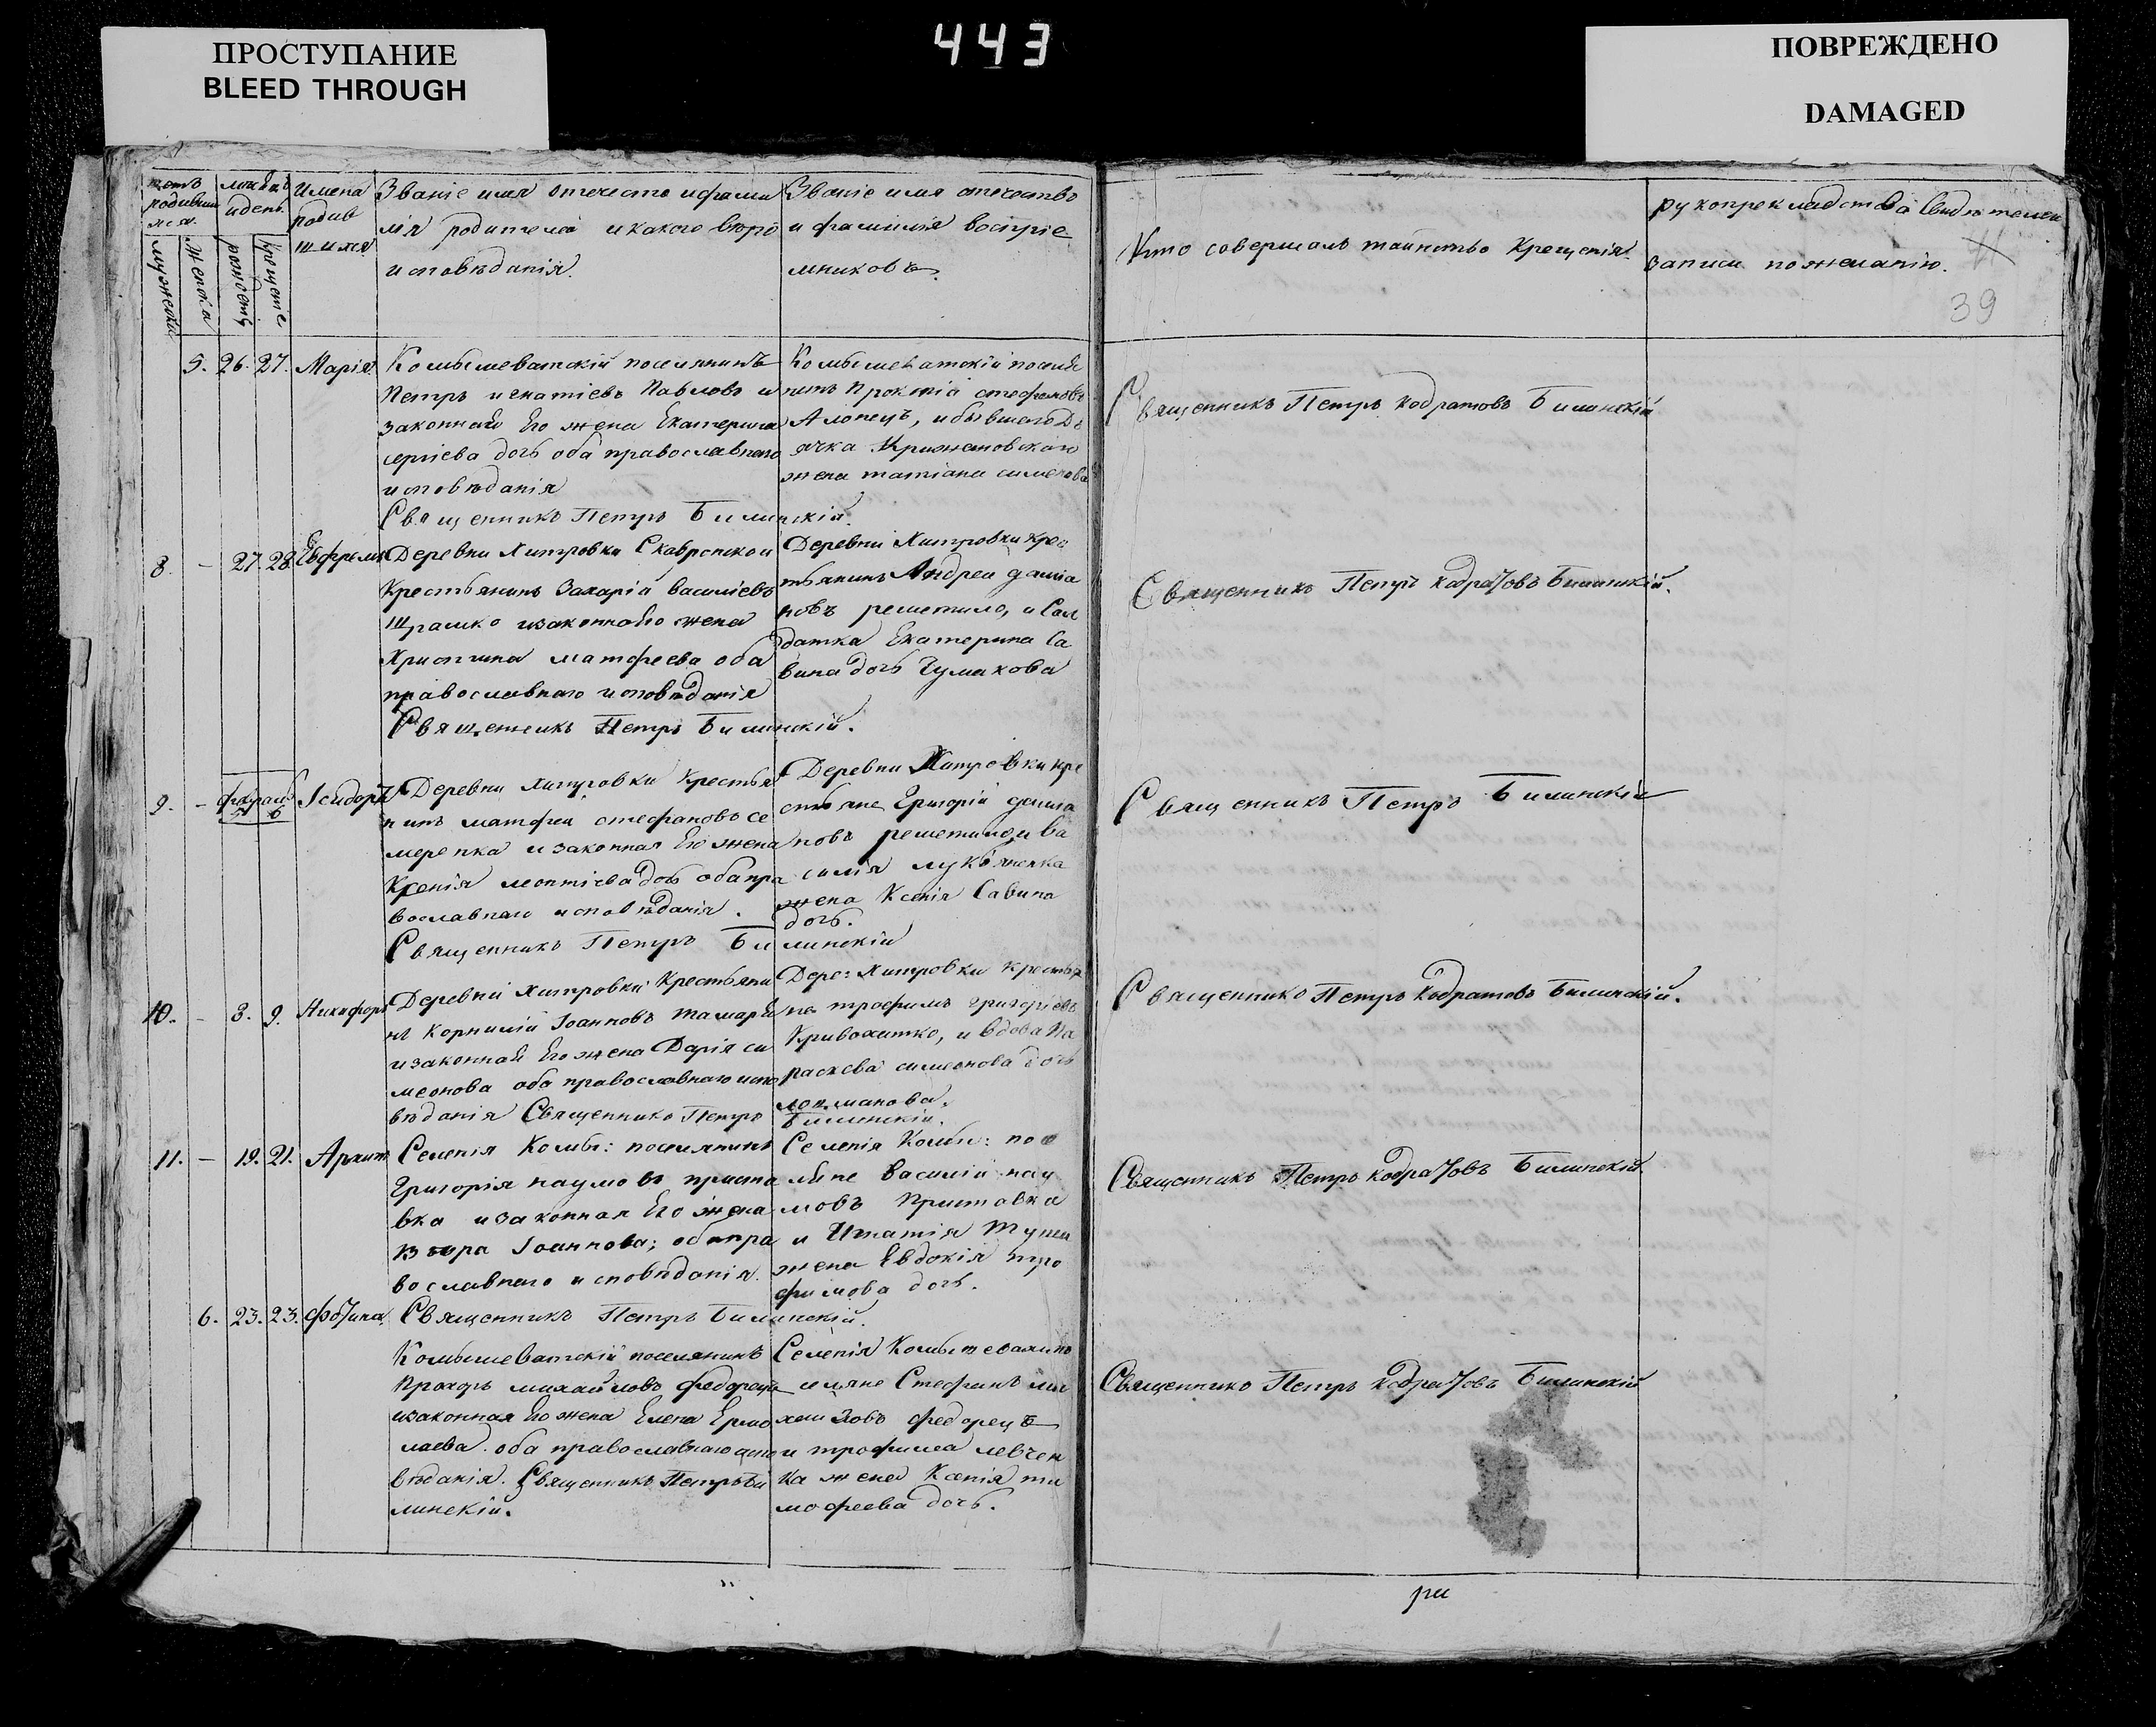 ПРОСТУПАНИЕ
BLEED THROUGH
443
ПОВРЕЖДЕНО
DAMAGED
родивши
хся
мужеска
женска
и день
рожденія
крещенія
Имена
родив
шихся
Званіе имя отечество и фами
лія родителей и какого вѣро
исповѣданія.
Званіе имя отечество
и фамилія воспріе
мниковъ
Кто совершалъ таинство Крещенія.
рукоприкладство свидѣтелей
записи по желанію.
39
5. 26. 27. Марія.
Комышеватскій поселянинъ
Петръ Игнатіевъ Павловъ и
законная Его жена Екатерина
сергіева дочь оба православнаго
исповѣданія
Священникъ Петръ Билинскій.
Комышеватскій поселя
нинъ Прокопій стефановъ
, и бывшего Дь
ячка Крижановского
жена татіана сименова
Священникъ Петръ Кодратовъ Билинскій
8. – 27. 28. Евфремъ
Деревни Хитровки Скавронской
Крестьянинъ Захарій василіевъ
Шрамко и законна Его жена
Христина матфеева оба
православнаго исповѣданія
Священникъ Петръ Билинскій.
Деревни Хитровки крес
тьянинъ Андрей даміа
новъ решетило, и Сол
датка Екатерина Са
вина дочь Чумакова
Священникъ Петръ Кодратовъ Билинскій.
9. – февраль 6 Ісидоръ
Деревни хитровки Крестья
нинъ матфей стефановъ се
меренка и законная Его жена
Ксенія леонтіева дочь оба пра
вославнаго исповѣданія.
Священникъ Петръ Билинскій
Деревни Хитровки кре
стьяне Григорій
новъ решетило, и Ва
силія лукьяненка
жена Ксенія Савина
дочь.
Священникъ Петръ Билинскій
10. – 8. 9. Никифоръ
Деревни Хитровки Крестьяни
нъ Корнилій Іоанновъ
и законная Его жена Дарія си
меонова оба православнаго испо
вѣданія Священникъ Петръ
Билинскій.
Дере: Хитровки крестья
не трофимъ григоріевъ
Кривохитко, и вдова Па
раскева симеонова дочь
лоцманова.
Священникъ Петръ Кодратовъ Билинскій.
11. – 19. 21. Архипъ
Селенія Комы: поселянинъ
Григорія наумовъ приста
вка и законная Его жена
Іоаннова; оба пра
вославнаго исповѣданія.
Священникъ Петръ Билинскій.
Селенія Комы: посе
ляне василій нау
мовъ Приставка
и Игнатія
жена Евдокія тро
фимова дочь.
Священникъ Петръ Кодратовъ Билинскій.
6. 23. 23. Фотина
Комышеватскій поселянинъ
Прохоръ михайловъ Федорецъ
и законная Его жена Елена Ермо
лаева оба православнаго испо
вѣданія. Священникъ Петръ Би
линскій.
Селенія
Стефанъ ми
хайловъ федорецъ
и трофима левчен
ка жена Ксенія ти
мофеева дочь.
Священникъ Петръ Кодратовъ Билинскій
ри